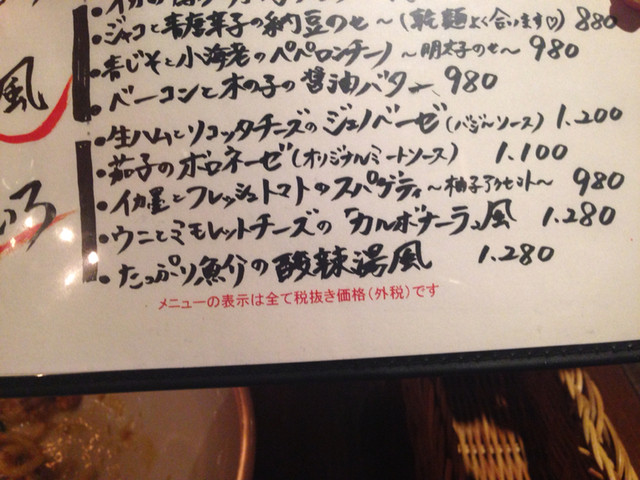 ・ジャコと青唐辛子の納豆のせ～(乾麺よく合います♡) 880
・青じそと小海老のペペロンチーノ～明太子のせ～ 980
・ベーコンと木の子の醤油バター 980
・生ハムとリコッタチーズのジェノベーゼ(バジルソース) 1.200
・茄子のボロネーゼ(オリジナルミートソース) 1.100
・イカ墨とフレッシュトマトのスパゲティ～柚子アクセント～ 980
・ウニとミモレットチーズの「カルボナーラ」風 1.280
・たっぷり魚介の酸辣湯風 1.280
メニューの表示は全て税抜き価格(外税)です
風